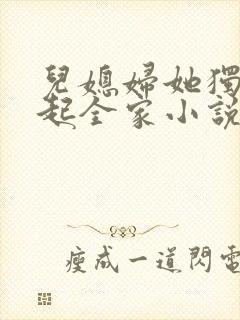 兒媳婦她獨
起全家小說
瘦成一道閃電